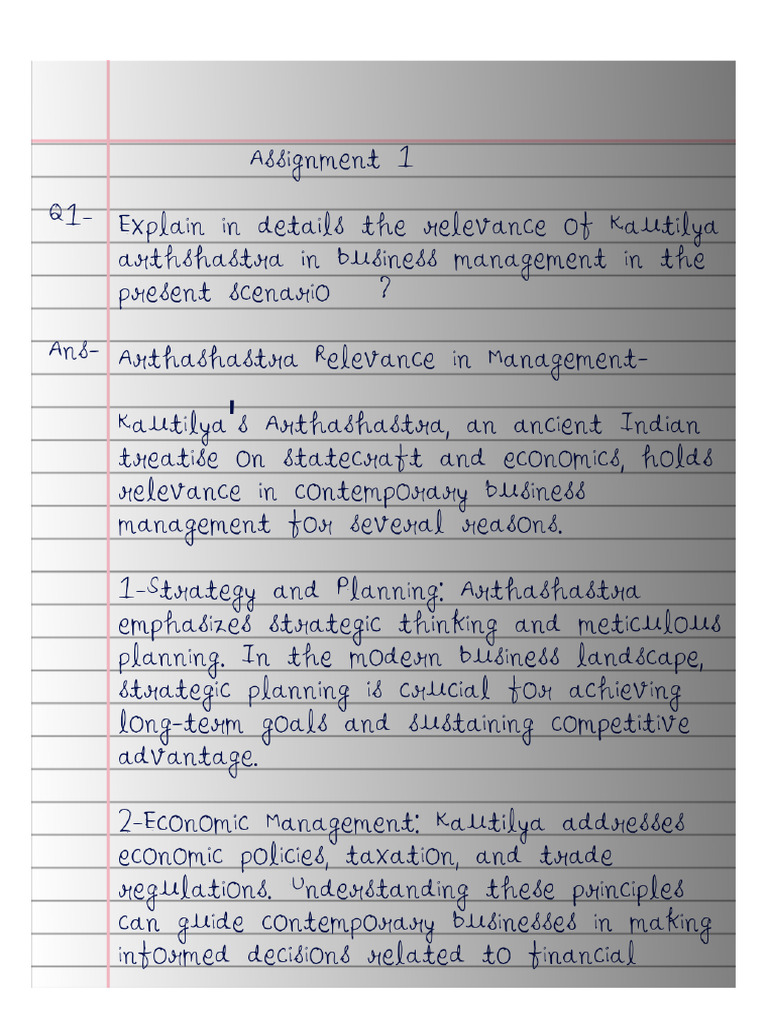 Assignment 1
Q1- Explain in details the relevance of Kautilya
arthshastra in business management in the
present scenario ?
Ans- Arthashastra Relevance in Management-
Kautilya's Arthashastra, an ancient Indian
treatise on statecraft and economics, holds
relevance in contemporary business
management for several reasons.
1-Strategy and Planning: Arthashastra
emphasizes strategic thinking and meticulous
planning. In the modern business landscape,
strategic planning is crucial for achieving
long-term goals and sustaining competitive
advantage.
2-Economic Management: Kautilya addresses
economic policies, taxation, and trade
regulations. Understanding these principles
can guide contemporary businesses in making
informed decisions related to financial